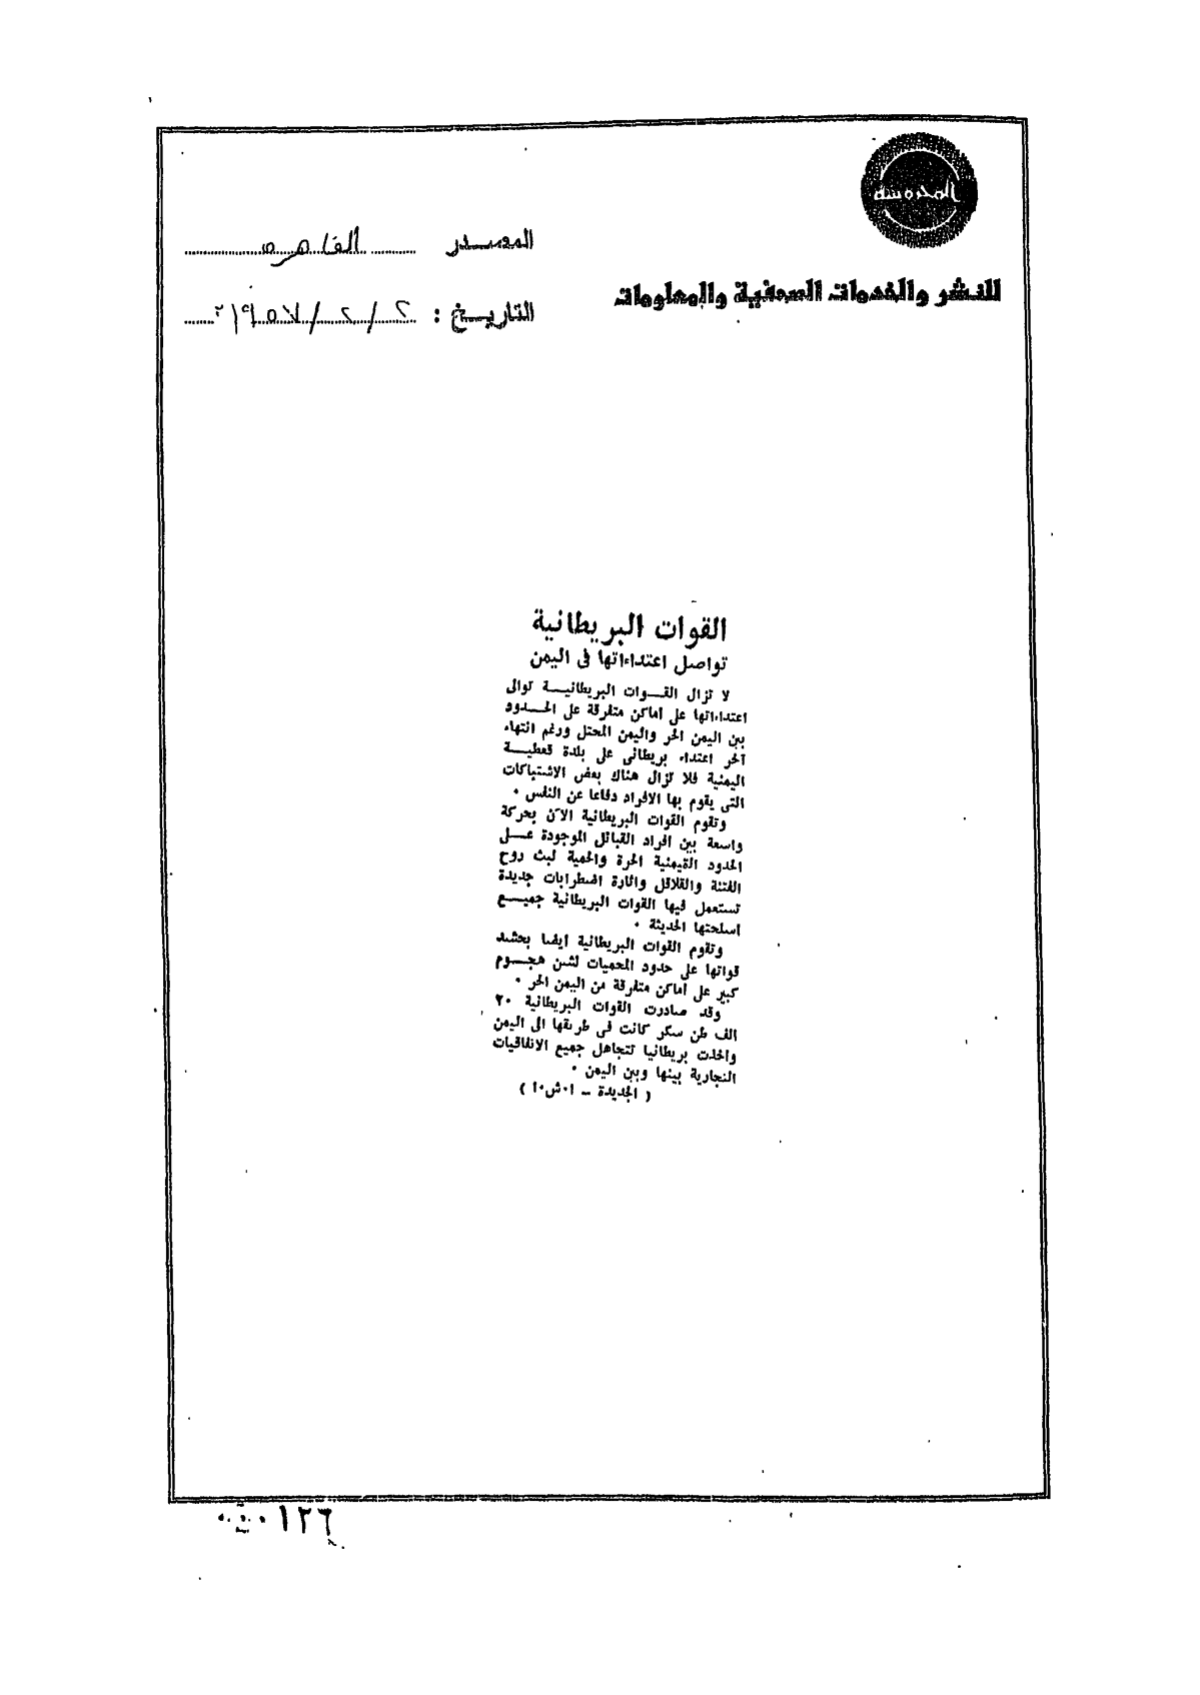 المحروسة
للنشر والخدمات الصحفية والمعلومات
المصدر القاهره
التاريخ : ٢ / ٢ / ١٩٥٧
القوات البريطانية
تواصل اعتداءاتها فى اليمن
لا تزال القـــوات البريطانيـــة توالى
اعتداءاتها على أماكن متفرقة على الحـــدود
بين اليمن الحر واليمن المحتل ورغم انتهاء
آخر اعتداء بريطانى على بلدة قعطبـــة
اليمنية فلا تزال هناك بعض الاشتباكات
التى يقوم بها الافراد دفاعا عن النفس ٠
وتقوم القوات البريطانية الآن بحركة
واسعة بين أفراد القبائل الموجودة عـــلى
الحدود القيمنية الحرة والمحمية لبث روح
الفتنة والقلاقل واثارة اضطرابات جديدة
تستعمل فيها القوات البريطانية جميـــع
اسلحتها الحديثة ٠
وتقوم القوات البريطانية أيضا بحشد
قواتها على حدود المحميات لشن هجـــوم
كبير على أماكن متفرقة من اليمن الحر ٠
وقد صادرت القوات البريطانية ٢٠
الف طن سكر كانت فى طريقها الى اليمن
واخذت بريطانيا تتجاهل جميع الاتفاقيات
التجارية بينها وبين اليمن ٠
( الجديدة ــ ا٠ش٠ا )
١٢٦